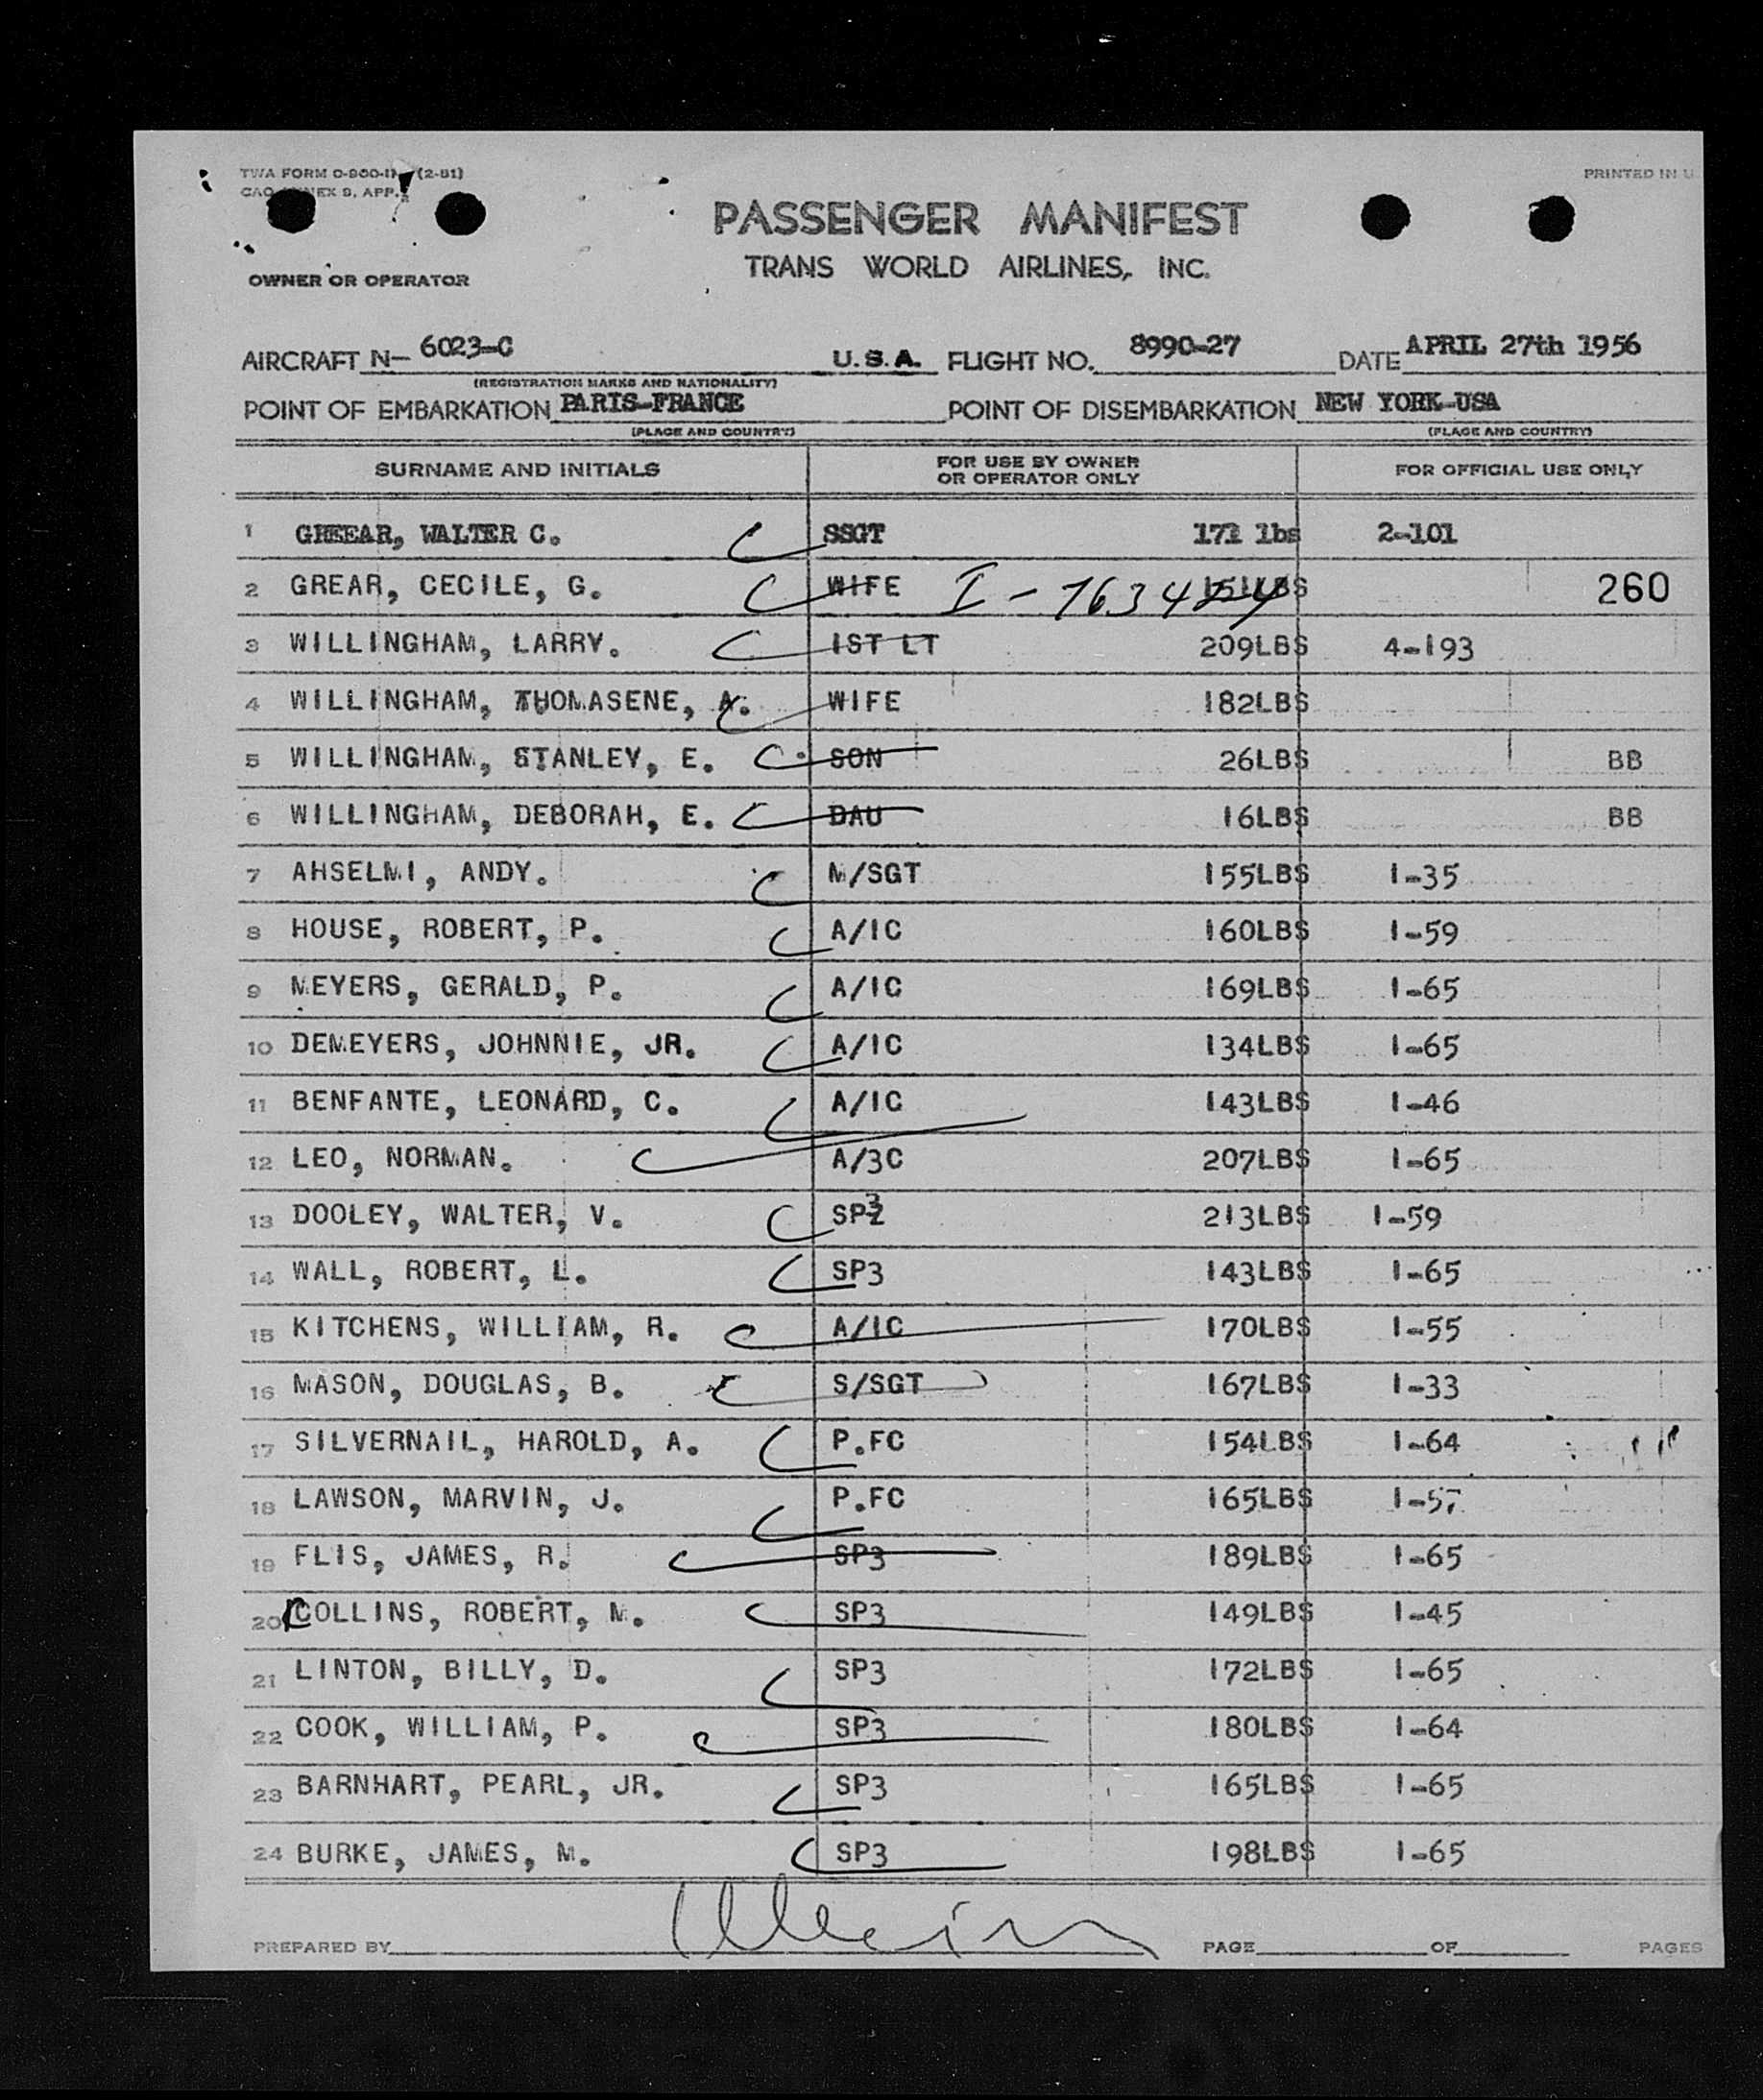 TWA FORM O-800-1 (2-51)
PRINTED IN U
ANNEX 9, APP.
PASSENGER MANIFEST
TRANS WORLD AIRLINES, INC.
OWNER OR OPERATOR
AIRCRAFT N- 6023-C U.S.A. FLIGHT NO. 8990-27 DATE APRIL 27th 1956
(REGISTRATION MARKS AND NATIONALITY)
POINT OF EMBARKATION PARIS-FRANCE POINT OF DISEMBARKATION NEW YORK-USA
(PLACE AND COUNTRY) (PLACE AND COUNTRY)
SURNAME AND INITIALS FOR USE BY OWNER OR OPERATOR ONLY FOR OFFICIAL USE ONLY
1 GREEAR, WALTER C. SSGT 171 lbs 2-101
2 GREAR, CECILE, G. WIFE I-763 LBS 260
3 WILLINGHAM, LARRY. 1ST LT 209LBS 4-193
4 WILLINGHAM, THOMASENE, A. WIFE 182LBS
5 WILLINGHAM, STANLEY, E. SON 26LBS BB
6 WILLINGHAM, DEBORAH, E. DAU 16LBS BB
7 AHSELMI, ANDY. M/SGT 155LBS 1-35
8 HOUSE, ROBERT, P. A/1C 160LBS 1-59
9 MEYERS, GERALD, P. A/1C 169LBS 1-65
10 DEMEYERS, JOHNNIE, JR. A/1C 134LBS 1-65
11 BENFANTE, LEONARD, C. A/1C 143LBS 1-46
12 LEO, NORMAN. A/3C 207LBS 1-65
13 DOOLEY, WALTER, V. SP3 213LBS 1-59
14 WALL, ROBERT, L. SP3 143LBS 1-65
15 KITCHENS, WILLIAM, R. A/1C 170LBS 1-55
16 MASON, DOUGLAS, B. S/SGT 167LBS 1-33
17 SILVERNAIL, HAROLD, A. P.FC 154LBS 1-64
18 LAWSON, MARVIN, J. P.FC 165LBS 1-57
19 FLIS, JAMES, R. SP3 189LBS 1-65
20 COLLINS, ROBERT, M. SP3 149LBS 1-45
21 LINTON, BILLY, D. SP3 172LBS 1-65
22 COOK, WILLIAM, P. SP3 180LBS 1-64
23 BARNHART, PEARL, JR. SP3 165LBS 1-65
24 BURKE, JAMES, M. SP3 198LBS 1-65
PREPARED BY PAGE OF PAGES